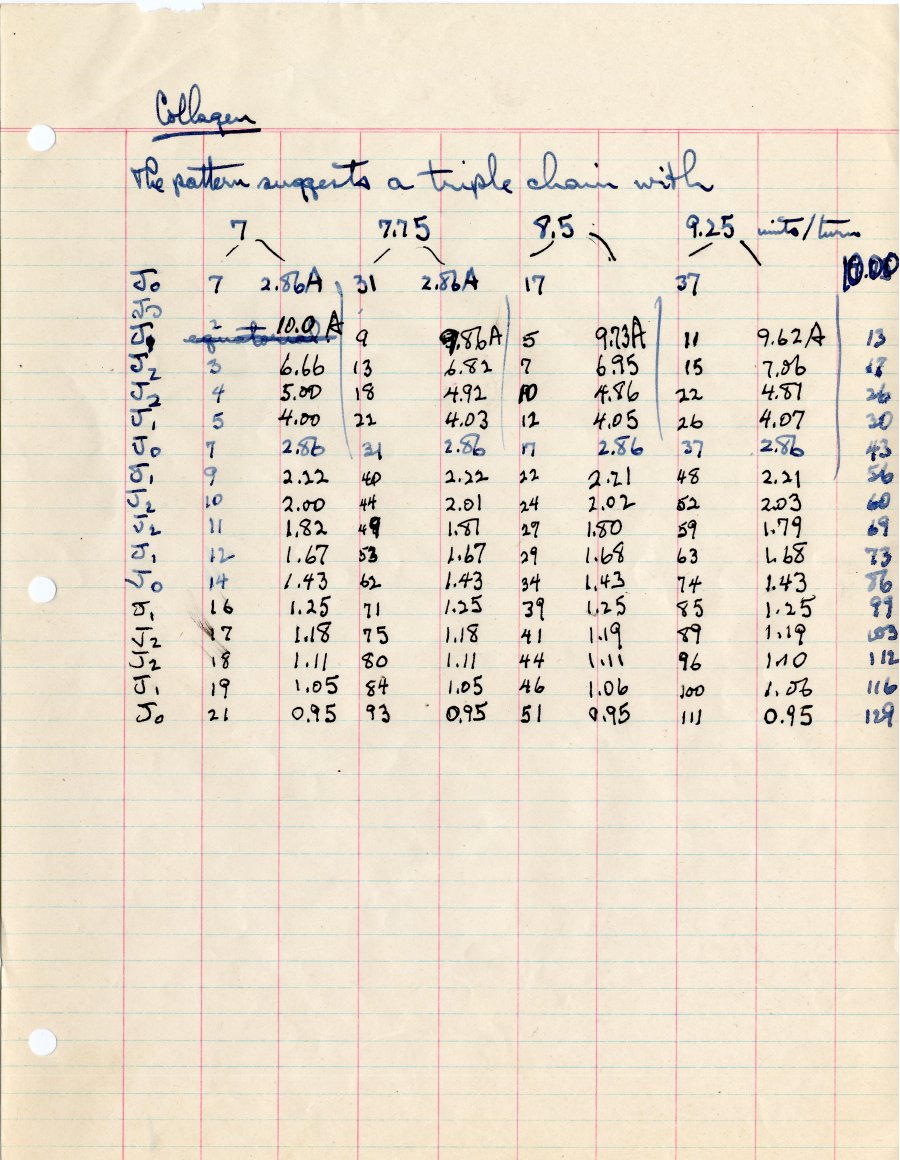 Collagen
The pattern suggests a triple chain with
7 7.75 8.5 9.25 units/turn
10.00
J0 7 2.86A 31 2.86A 17 37
J1 2 10.0 A 9 9.86A 5 9.73A 11 9.62A 13
J2 3 6.66 13 6.82 7 6.95 15 7.06 17
J2 4 5.00 18 4.92 10 4.86 22 4.81 26
J1 5 4.00 22 4.03 12 4.05 26 4.07 30
J0 7 2.86 31 2.86 17 2.86 37 2.86 43
J1 9 2.22 40 2.22 22 2.21 48 2.21 56
J2 10 2.00 44 2.01 24 2.02 52 2.03 60
J2 11 1.82 49 1.81 27 1.80 59 1.79 69
J1 12 1.67 53 1.67 29 1.68 63 1.68 73
J0 14 1.43 62 1.43 34 1.43 74 1.43 86
J1 16 1.25 71 1.25 39 1.25 85 1.25 99
J2 17 1.18 75 1.18 41 1.19 89 1.19 103
J2 18 1.11 80 1.11 44 1.11 96 1.10 112
J1 19 1.05 84 1.05 46 1.06 100 1.06 116
J0 21 0.95 93 0.95 51 0.95 111 0.95 129